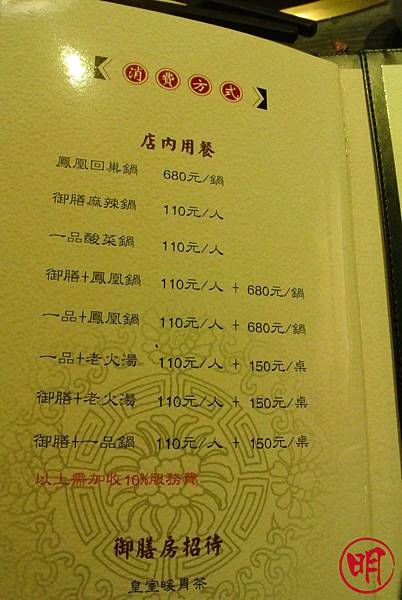 消費方式
店內用餐
鳳凰回巢鍋 680元/鍋
御膳麻辣鍋 110元/人
一品酸菜鍋 110元/人
御膳+鳳凰鍋 110元/人 + 680元/鍋
一品+鳳凰鍋 110元/人 + 680元/鍋
一品+老火湯 110元/人 + 150元/桌
御膳+老火湯 110元/人 + 150元/桌
御膳+一品鍋 110元/人 + 150元/桌
以上需加收10%服務費
御膳房招待
皇室暖胃茶
明